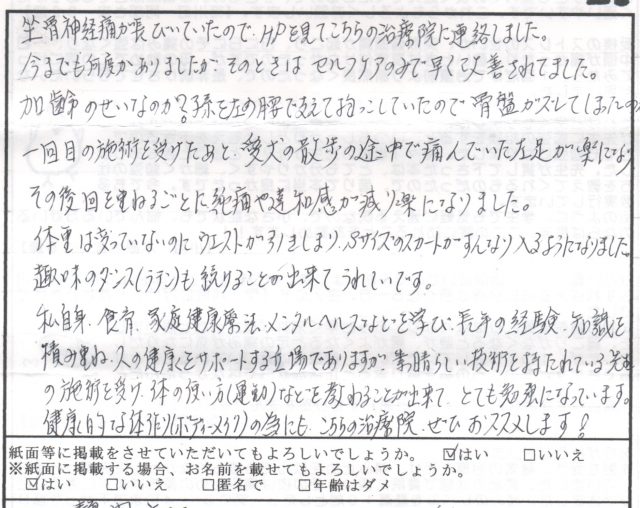 坐骨神経痛が長びいていたので、HPを見てこちらの治療院に連絡しました。
今までも何度かありましたが、そのときはセルフケアのみで早くて改善されてました。
加齢のせいなのか?孫を左の腰で支えて抱っこしていたので骨盤がズレてしまったのか
一回目の施術を受けたあと、愛犬の散歩の途中で痛んでいた左足が楽になり
その後回を重ねるごとに鈍痛や違和感が減り楽になりました。
体重は変っていないのにウエストが引きしまり、Sサイズのスカートがすんなり入るようになりました。
趣味のダンス(ラテン)も続けることが出来てうれしいです。
私自身、食育、家庭健康療法、メンタルヘルスなどを学び、長年の経験、知識を
積み重ね、人の健康をサポートする立場でありますが、素晴らしい技術を持たれている先生
の施術を受け、体の使い方(運動)などを教われることが出来て、とても勉強になっています。
健康的な体作り(ボディーメイク)の為にも、こちらの治療院、ぜひおススメします!
紙面等に掲載をさせていただいてもよろしいでしょうか。 ☑はい □いいえ
※紙面に掲載する場合、お名前を載せてもよろしいでしょうか。
☑はい □いいえ □匿名で □年齢はダメ